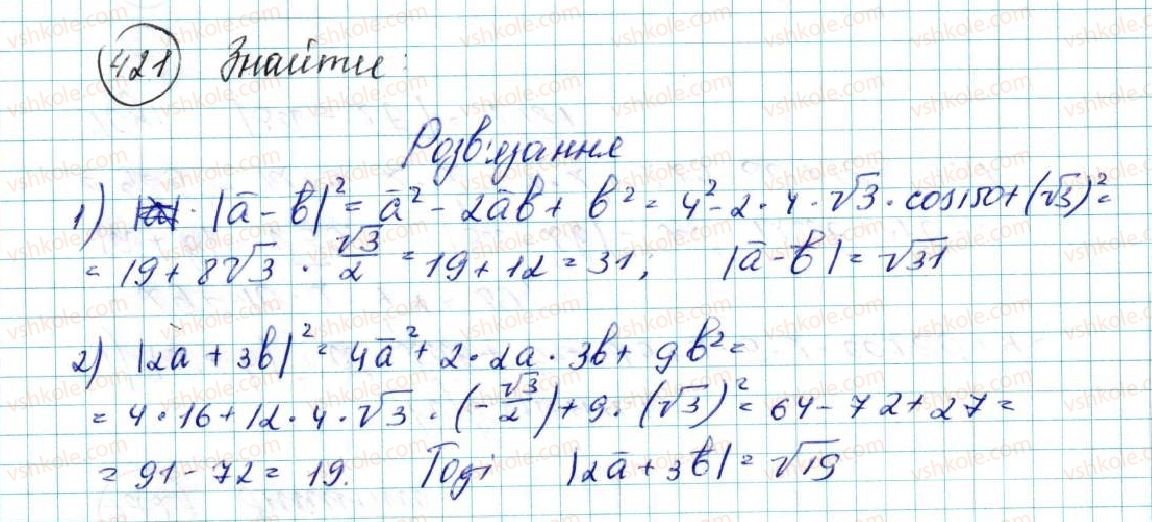 421 Знайти:
Розв'язання
1) |ā - b̄|² = ā² - 2āb + b² = 4² - 2 · 4 · √3 · cos150 + (√3)² =
= 19 + 8√3 · √3/2 = 19 + 12 = 31; |ā - b̄| = √31
2) |2ā + 3b|² = 4ā² + 2 · 2a · 3b + 9b² =
= 4 · 16 + 12 · 4 · √3 · (-√3/2) + 9 · (√3)² = 64 - 72 + 27 =
= 91 - 72 = 19. Тоді |2ā + 3b̄| = √19
vshkole.com